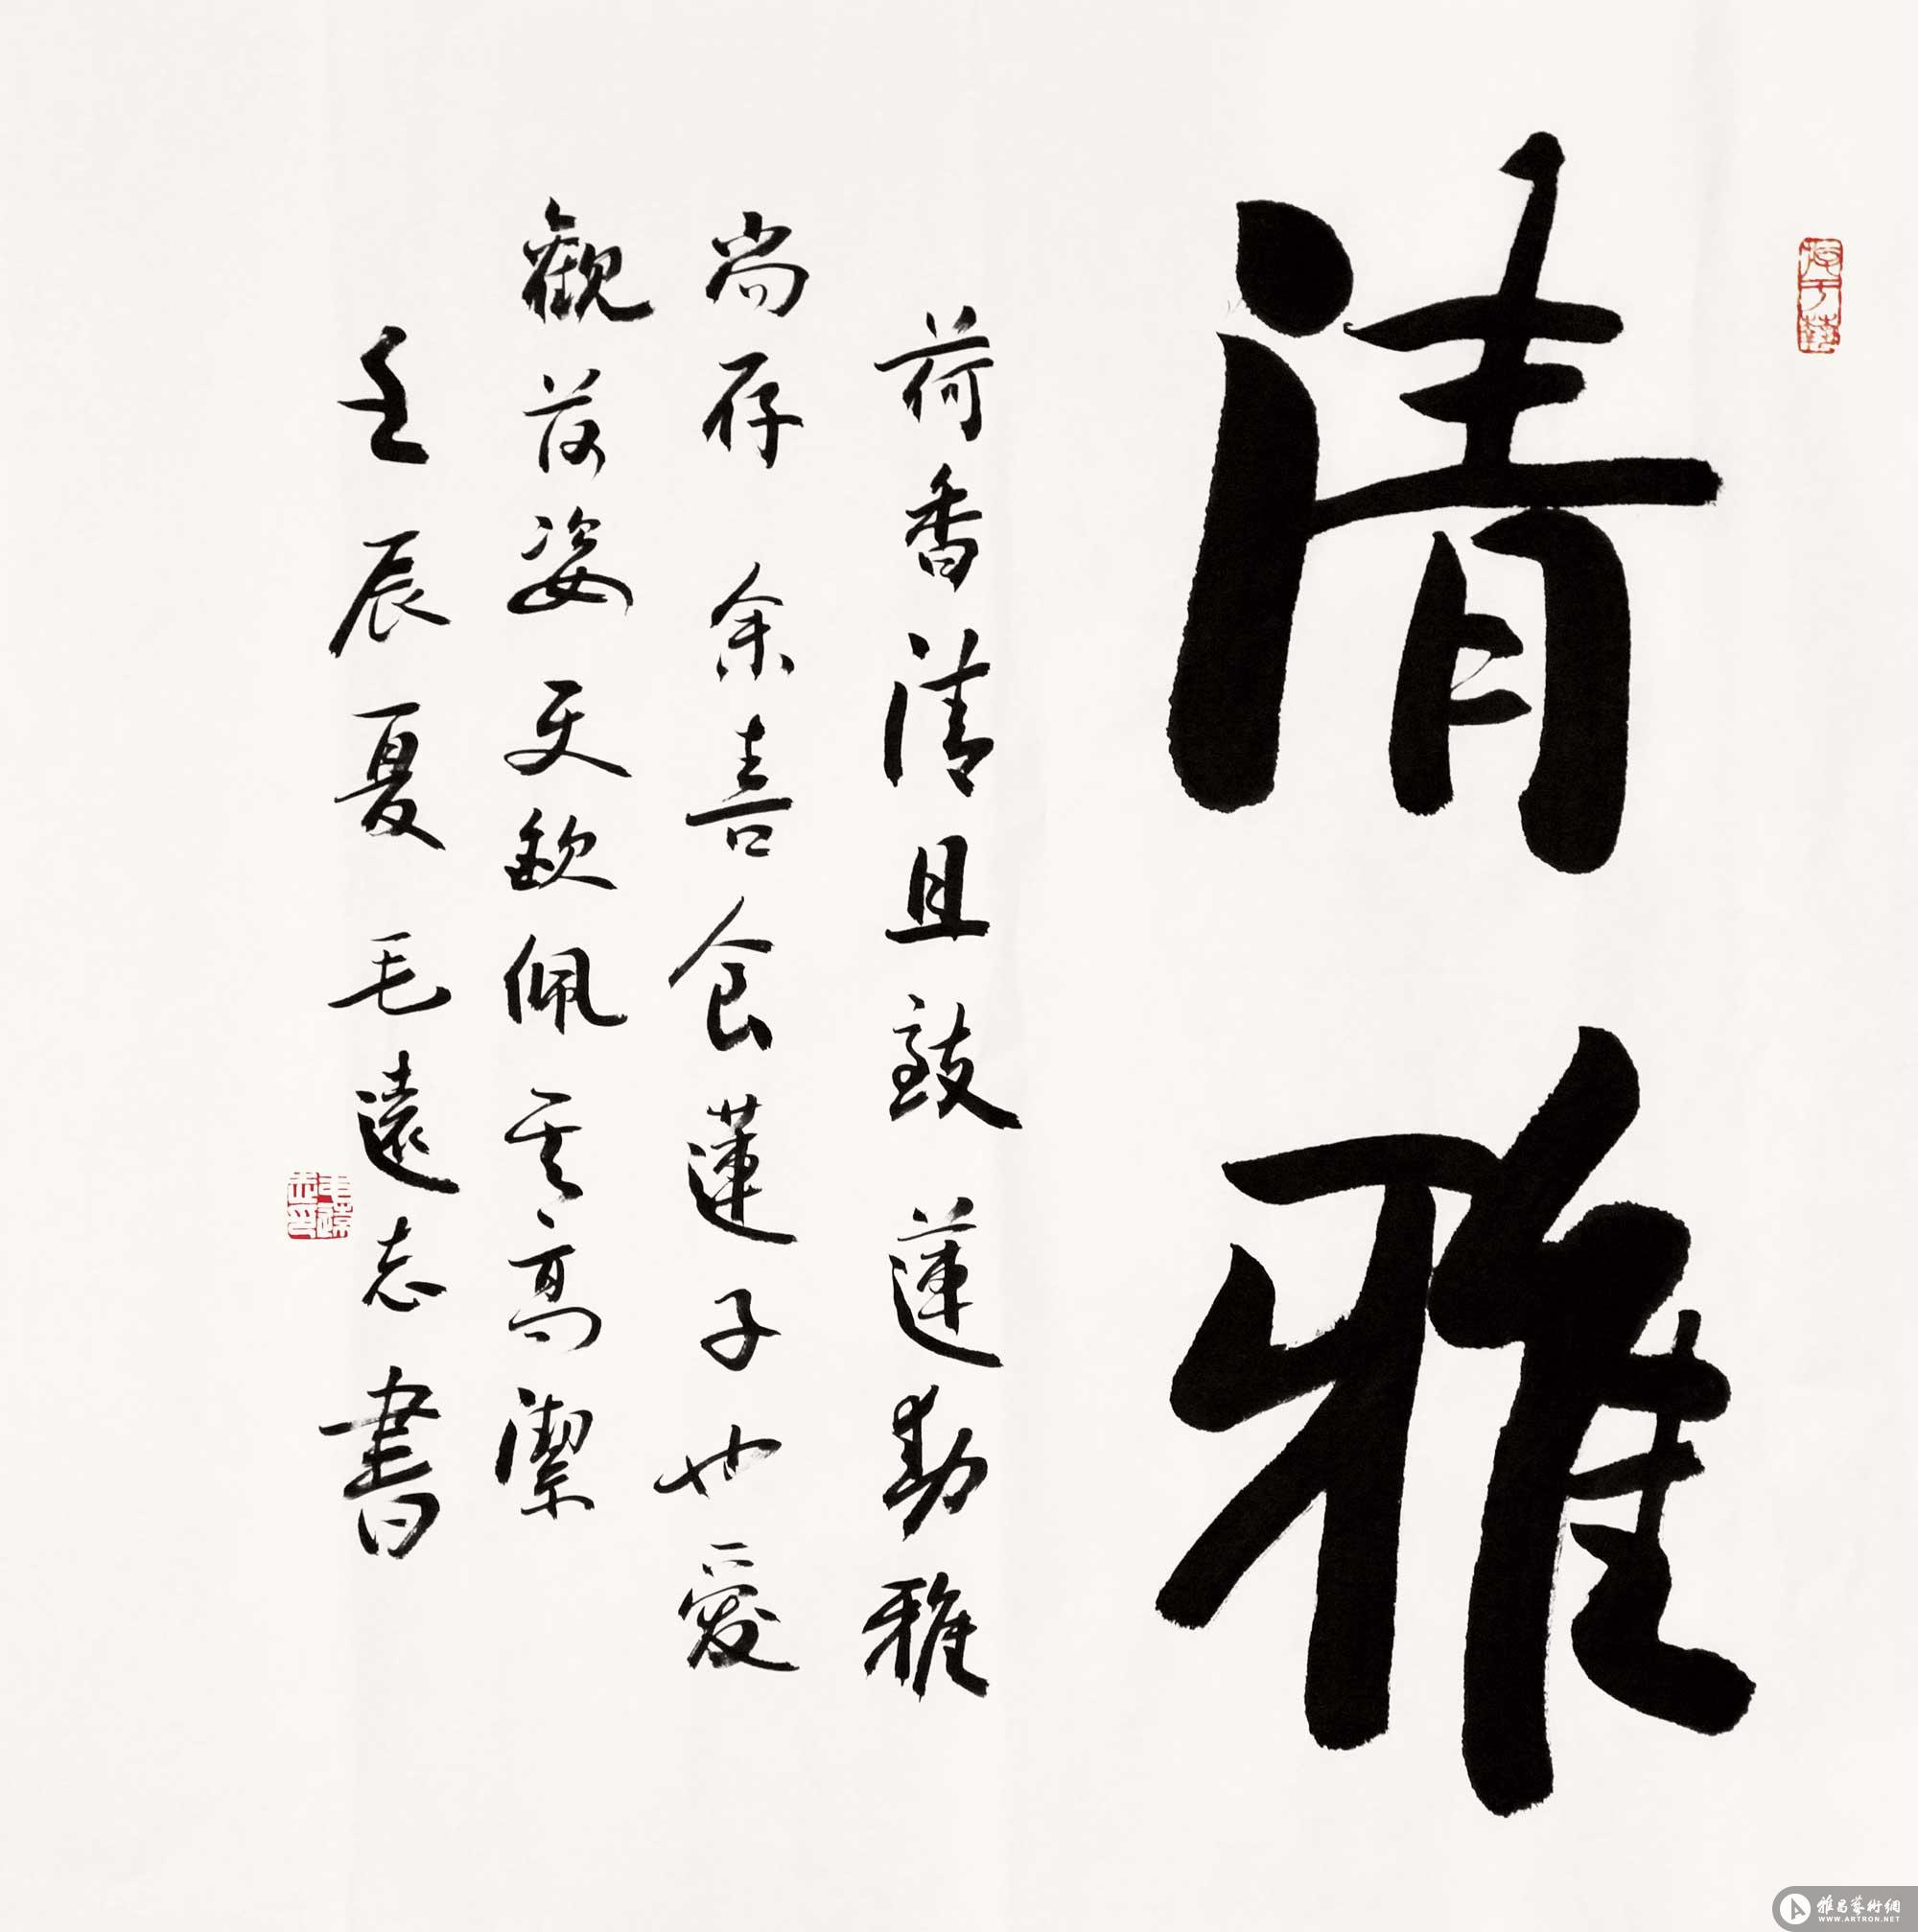 清雅
荷香清且致蓮勁雅
尚存余喜食蓮子也愛
觀荷姿更欽佩其高潔
壬辰夏毛遠志書
游于藝
雅昌藝術網
WWW.ARTRON.NET